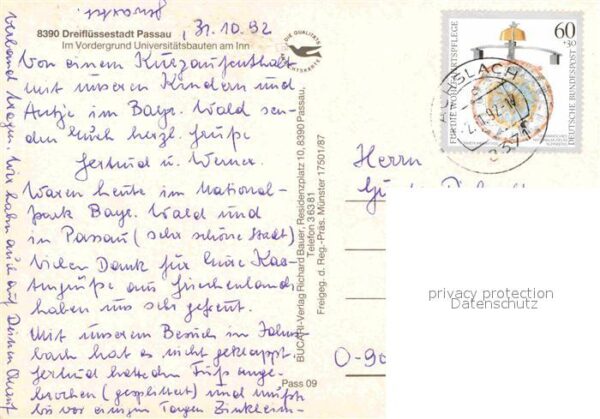 8390 Dreiflüssestadt Passau
Im Vordergrund Universitätsbauten am Inn
31.10.92
Von einem Kurzaufenthalt
mit unseren Kindern und
Antje im Bayr. Wald sen-
den Euch herzl. Grüße
Gertrud u. Werner.
Waren heute im National-
park Bayr. Wald und
in Passau (sehr schöne Stadt)
Vielen Dank für Eure Kar-
tengrüße aus Griechenland
haben uns sehr gefreut.
Mit unserem Besuch in
hat es nicht geklappt.
Gertrud hatte den Fuß ange-
brochen (gesplittert) und mußte
bis vor einigen Tagen
Prost
Wir haben auch auf Deinen
BUCARI-Verlag Richard Bauer, Residenzplatz 10, 8390 Passau,
Telefon 36381
Freigeg. d. Reg.-Präs. Münster 17501/87
Pass 09
DIE QUALITÄTS
FÜR DIE WOHLFAHRTSPFLEGE
60
+30
DEUTSCHE BUNDESPOST
ACHSLACH
8371
Herrn
O-90
privacy protection
Datenschutz